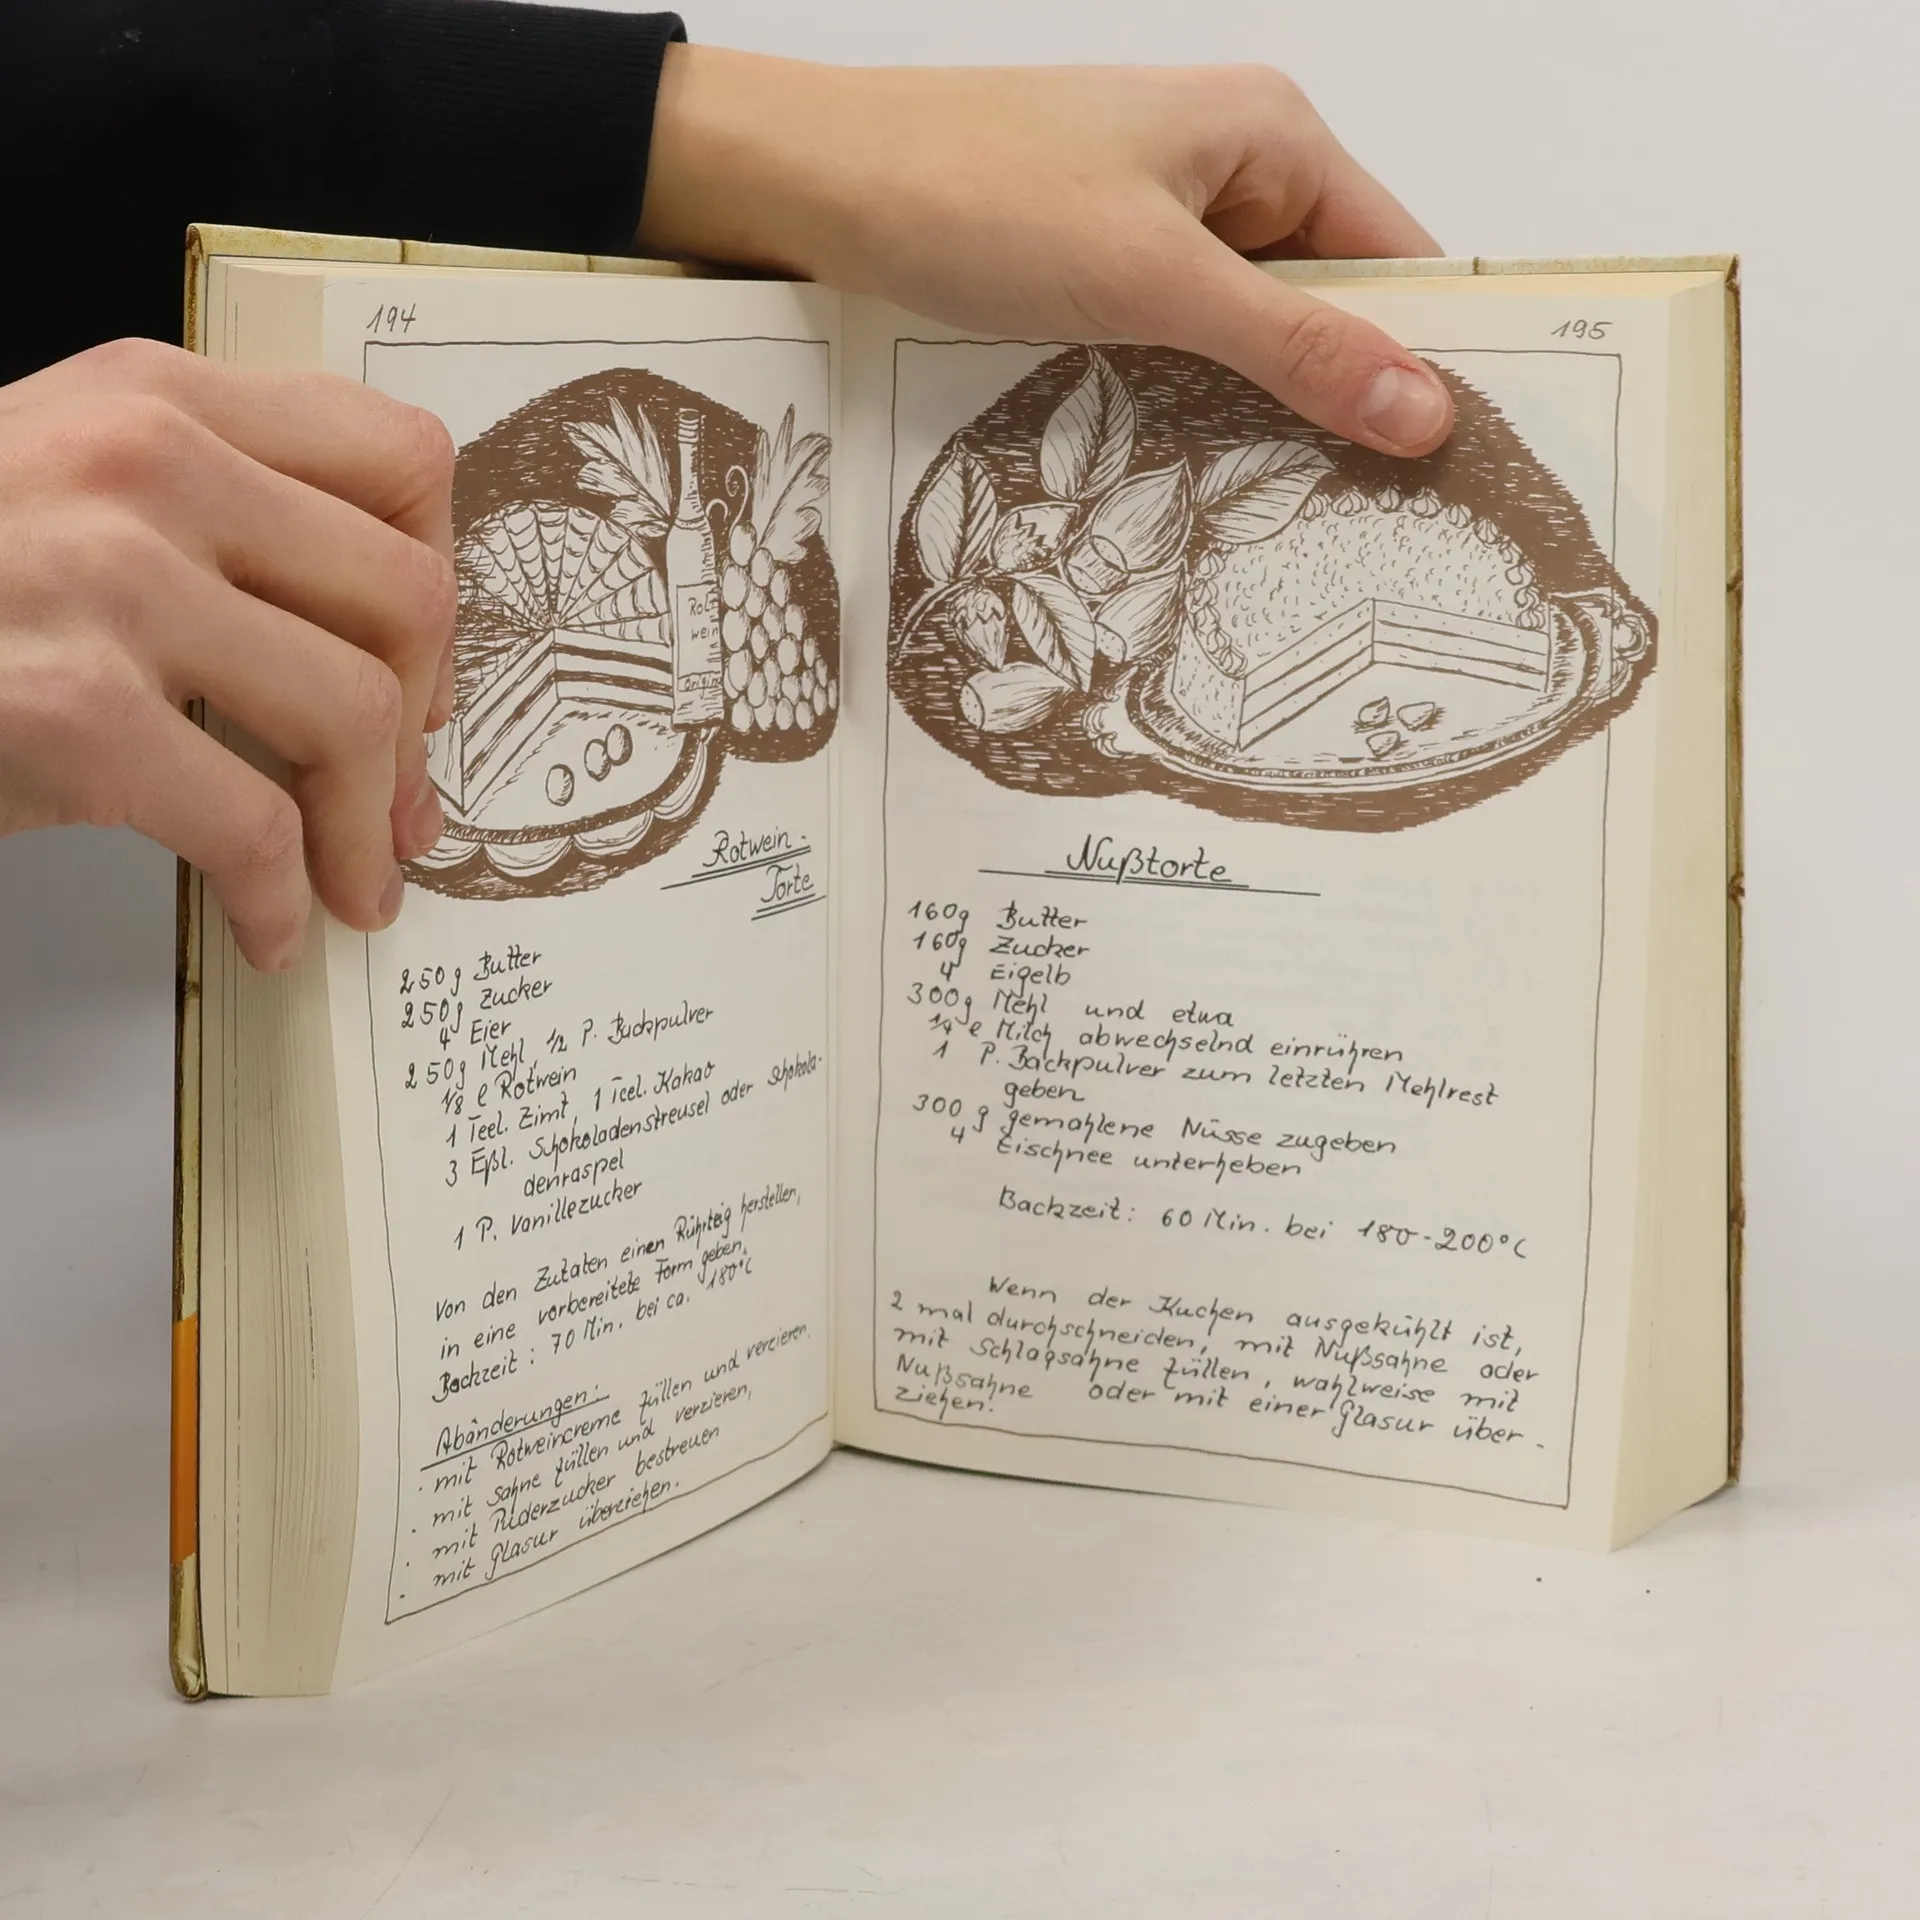 194
Rot
wein
Origin
Rotwein-
Torte
250g Butter
250g Zucker
4 Eier
250g Mehl, 1/2 P. Backpulver
1/8 l Rotwein
1 Teel. Zimt, 1 Teel. Kakao
3 Eßl. Schokoladenstreusel oder Schokola-
denraspel
1 P. Vanillezucker
Von den Zutaten einen Rührteig herstellen,
in eine vorbereitete Form geben.
Backzeit: 70 Min. bei ca. 180°C
Abänderungen:
· mit Rotweincreme füllen und verzieren,
· mit Sahne füllen und verzieren,
· mit Puderzucker bestreuen
· mit Glasur überziehen.
195
Nußtorte
160g Butter
160g Zucker
4 Eigelb
300g Mehl und etwa
1/4 l Milch abwechselnd einrühren
1 P. Backpulver zum letzten Mehlrest
geben
300 g gemahlene Nüsse zugeben
4 Eischnee unterheben
Backzeit: 60 Min. bei 180-200°C
Wenn der Kuchen ausgekühlt ist,
2 mal durchschneiden, mit Nußsahne oder
mit Schlagsahne füllen, wahlweise mit
Nußsahne oder mit einer Glasur über-
ziehen.